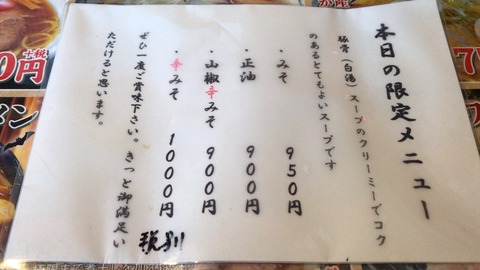 本日の限定メニュー
豚骨(白湯)スープのクリーミーでコク
のあるとてもよいスープです
・みそ 950円
・正油 900円
・山椒辛みそ 900円
・辛みそ 1000円
ぜひ一度ご賞味下さい。きっと御満足い
ただけると思います。
税別
0円
+税
メン